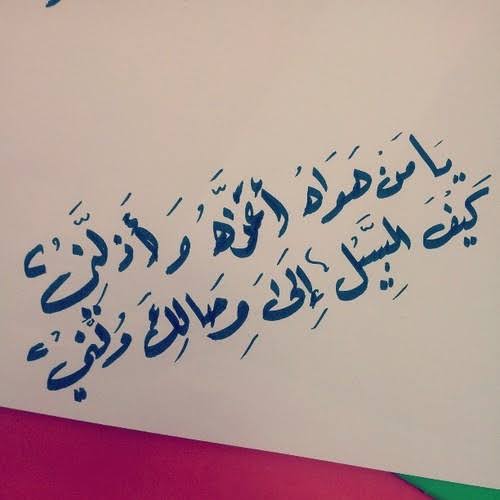 يَا مَنْ هَوَاهُ أَعَزَّهُ وَ أَذَلَّنِي
كَيْفَ السَّبِيلُ إِلَىَ وِصَالِكَ دُلَّنِي